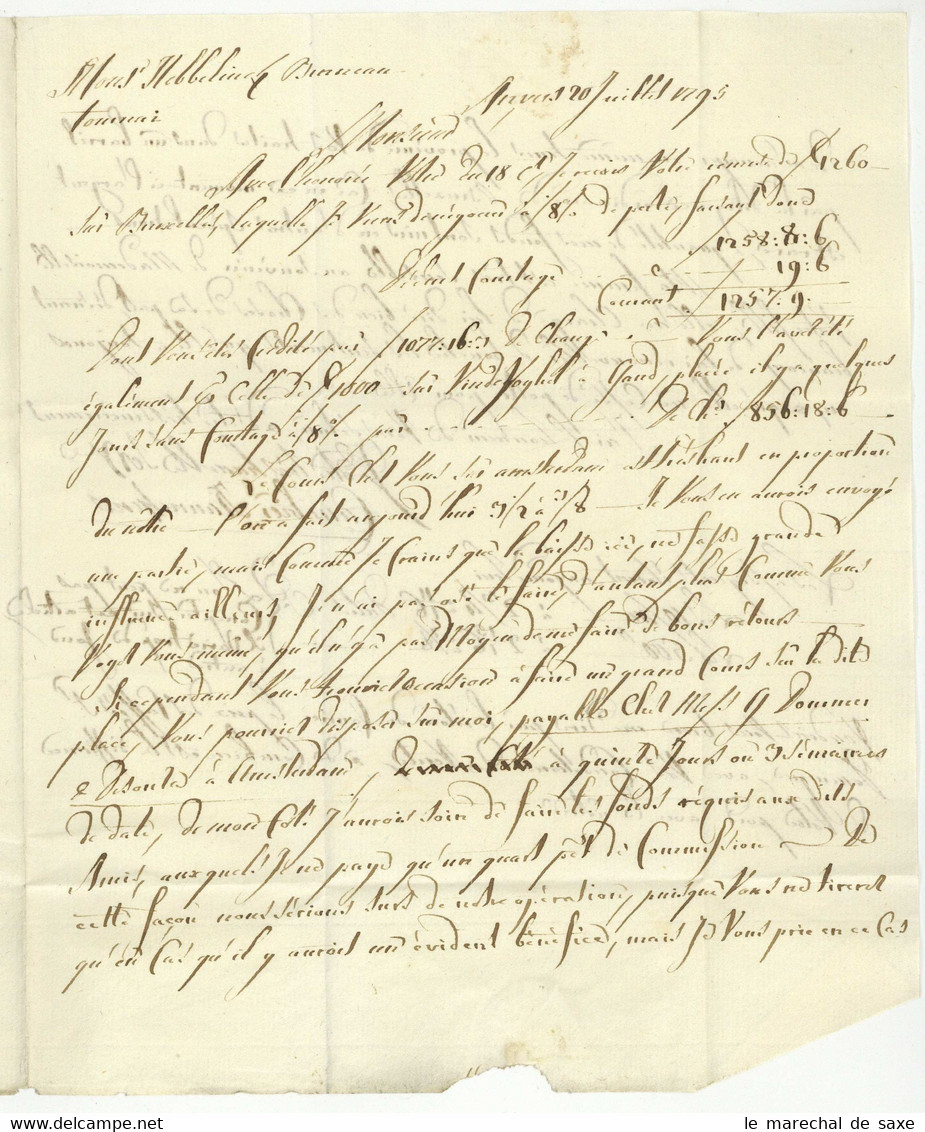 Mons.r Hebbelinck Bruneau
tournai
Anvers 20 Juillet 1795
Monsieur
Avec l'honorée Votre du 18 Ct Je reçois Votre remise de ƒ1260 —
sur Bruxelles, laquelle Je Viens de négocier à 1/8% de perte, faisant donc
ƒ1258:8:6
Courtage - 19:6
Courant ƒ1257:9 -
Dont Vous êtes Crédité par ƒ1077:16:1 de Change - Vous l'avez été
également de Celle de ƒ1000 - sur Vindevoghel à Gand, placée il y a quelques
Jours sans Courtage à 1/8% par de Ch. ƒ856:18:6
Le Cours Chez Vous sur amsterdam est très haut en proportion
du nôtre — l'on a fait aujourd'hui 3 1/2 à 3/8 — Je Vous en aurois envoyé
une partie, mais Comme Je Crains que la baisse ici, ne fasse grande
influence ailleurs, Je n'ai pas osé le faire, d'autant plus Comme Vous
Voyez Vous même, qu'il n'y a pas Moyen de me faire de bons retours —
Si cependant Vous trouviez occasion à faire un grand Cours sur la dite
place, Vous pourriez disposer sur moi, payable Chez Mess. G Dommer
& Desontes à Amsterdam, à quinze Jours ou 3 semaines
de date, de mon Coté J'aurois soin de faire les fonds réquis aux dits
Amis, auxquels Je ne paye qu'un quart pCt de Commission — De
cette façon nous serions surs de notre opération, puisque Vous ne tirerez
qu'en Cas qu'il y auroit un évident bénéfice, mais Je Vous prie en ce Cas
le marechal de saxe